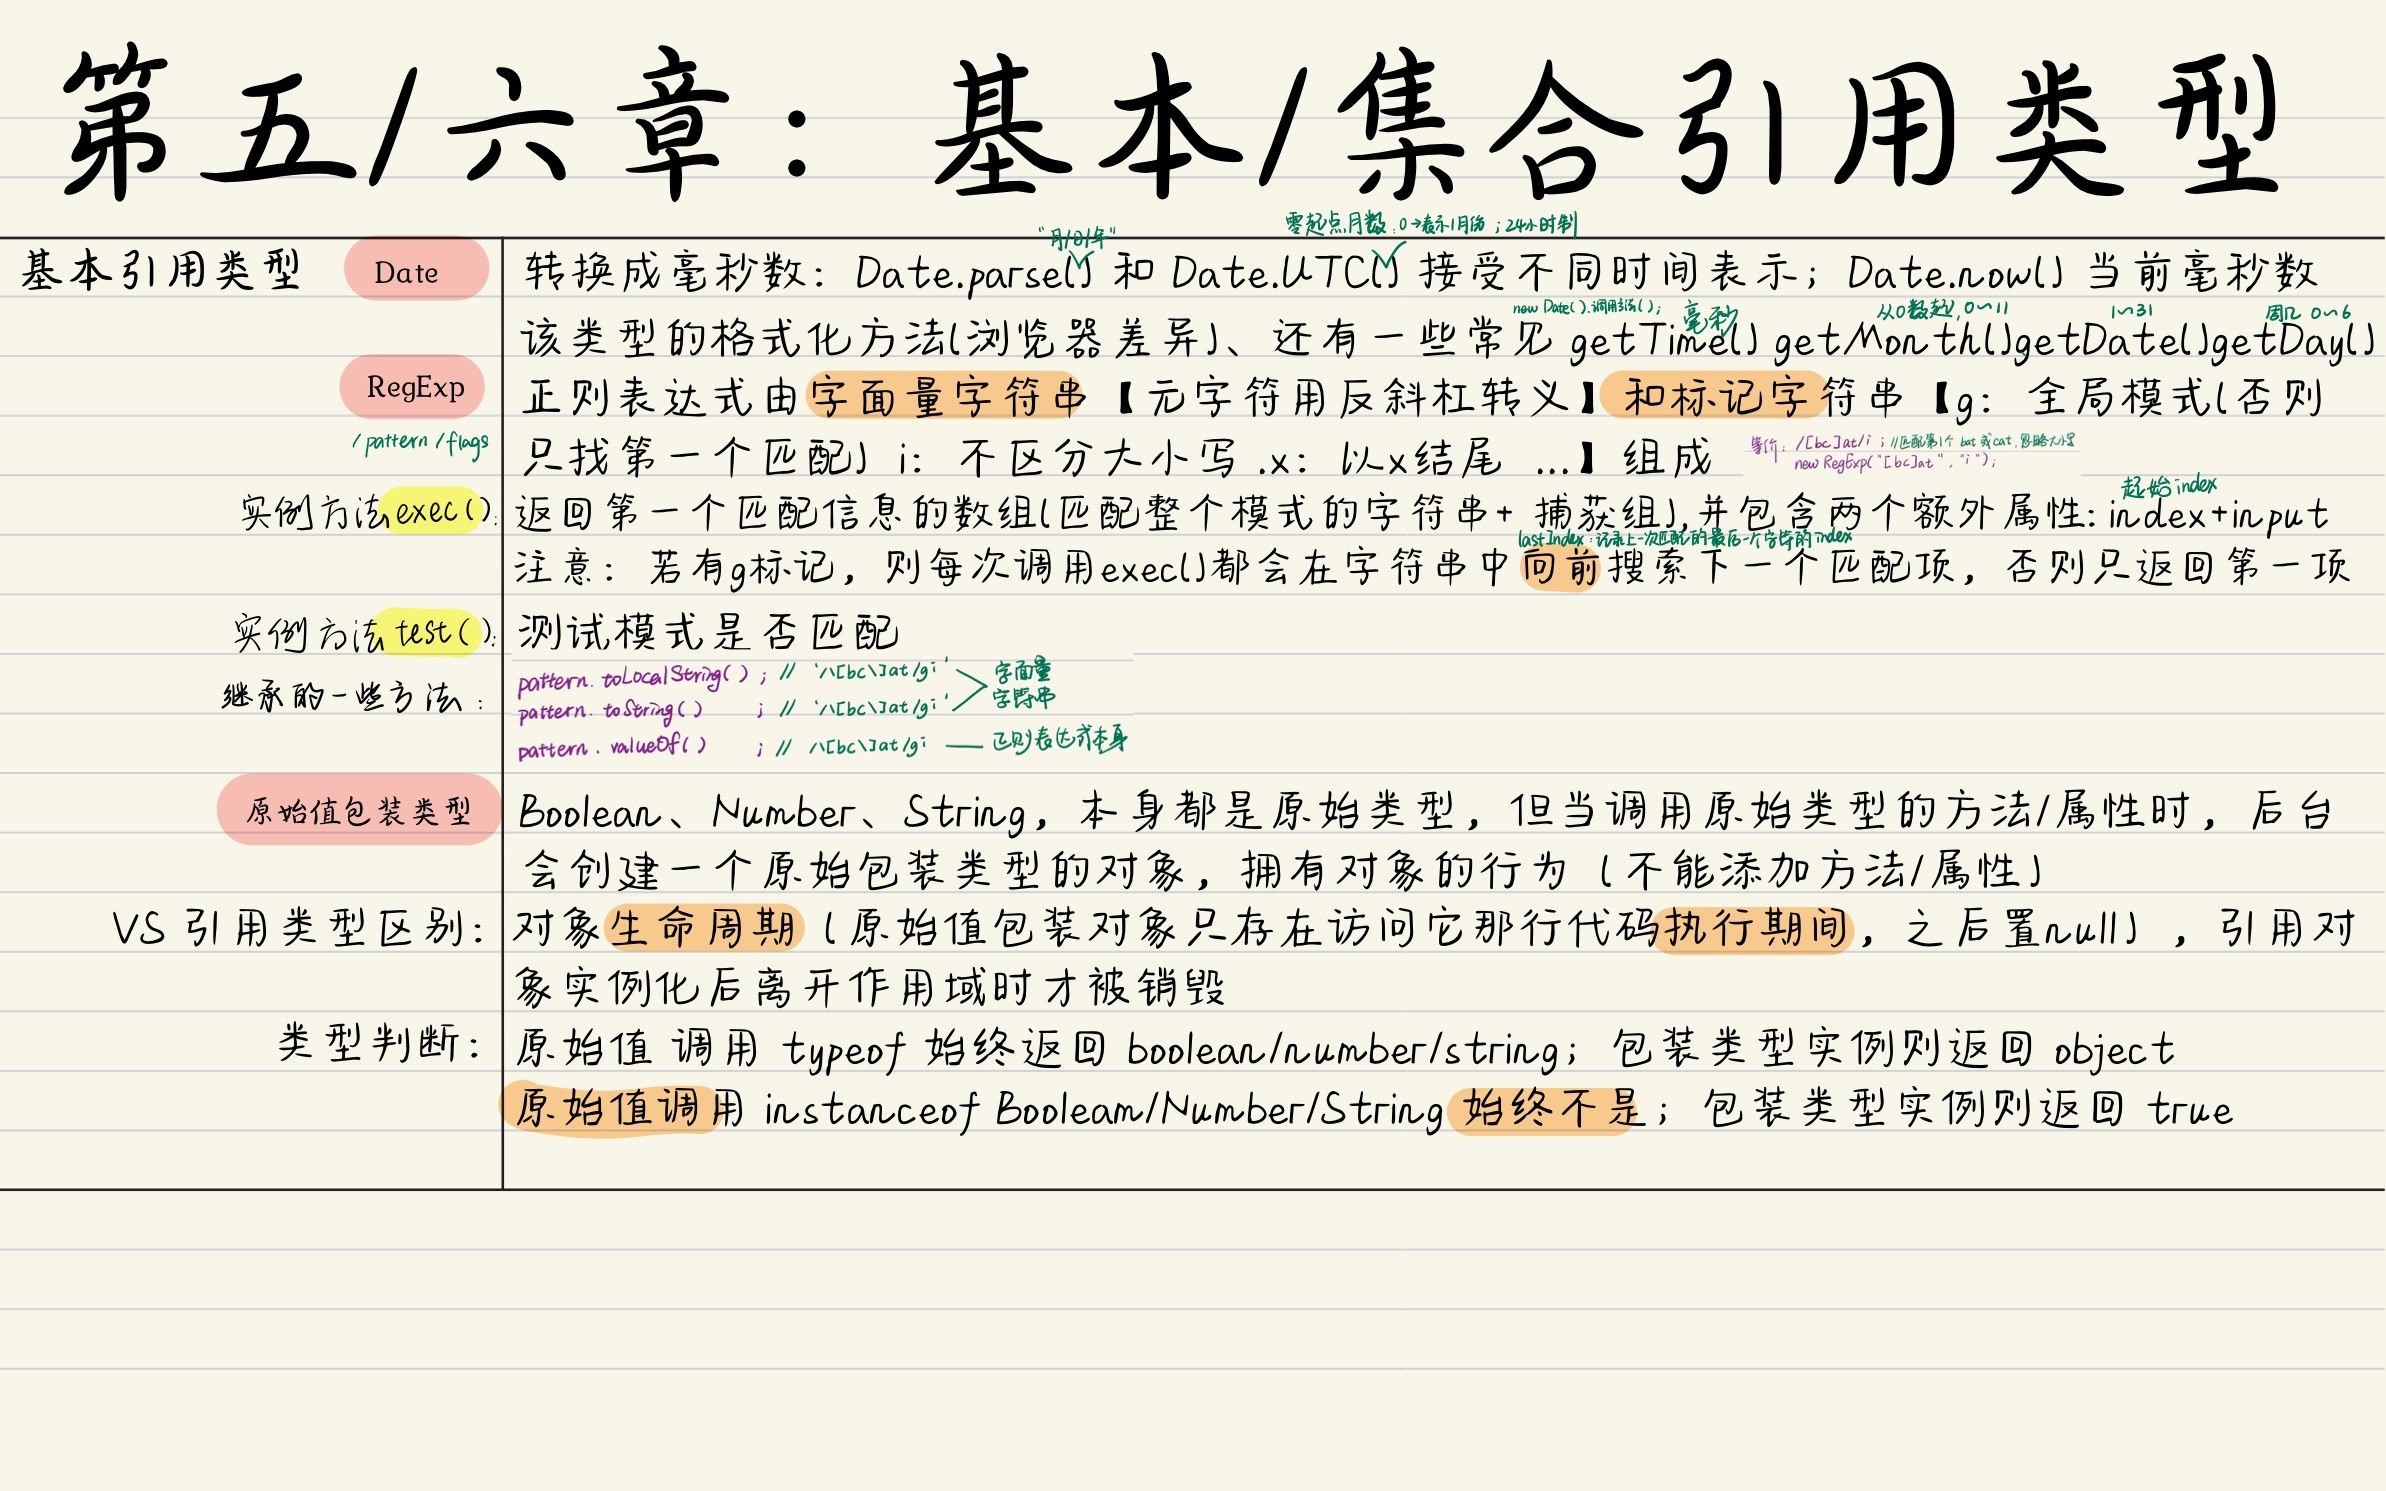 第五/六章：基本/集合引用类型
"月/日/年" 零起点月数，0→表示1月份；24小时制
基本引用类型 Date 转换成毫秒数：Date.parse() 和 Date.UTC() 接受不同时间表示；Date.now() 当前毫秒数
new Date().调用方法()； 毫秒 从0数起，0~11 1~31 周几 0~6
该类型的格式化方法(浏览器差异)、还有一些常见 getTime() getMonth()getDate()getDay()
RegExp 正则表达式由字面量字符串【元字符用反斜杠转义】和标记字符串【g：全局模式(否则
/pattern/flags 只找第一个匹配) i：不区分大小写 .x：以x结尾 ...】组成
等价：/[bc]at/i ；//匹配第1个 bat 或cat，忽略大小写
new RegExp("[bc]at"，"i");
起始index
实例方法exec()：返回第一个匹配信息的数组(匹配整个模式的字符串+ 捕获组),并包含两个额外属性:index+input
lastIndex：记录上一次匹配的最后一个字符的index
注意：若有g标记，则每次调用exec()都会在字符串中向前搜索下一个匹配项，否则只返回第一项
实例方法test()：测试模式是否匹配
继承的一些方法：
pattern.toLocalString() ；// '/\[bc\]at/gi'
字面量
字符串
pattern.toString() ；// '/\[bc\]at/gi'
pattern.valueOf() ；// /\[bc\]at/gi —— 正则表达式本身
原始值包装类型 Boolean、Number、String，本身都是原始类型，但当调用原始类型的方法/属性时，后台
会创建一个原始包装类型的对象，拥有对象的行为（不能添加方法/属性）
VS 引用类型区别：对象生命周期（原始值包装对象只存在访问它那行代码执行期间，之后置null），引用对
象实例化后离开作用域时才被销毁
类型判断：原始值 调用 typeof 始终返回 boolean/number/string；包装类型实例则返回 object
原始值调用 instanceof Booleam/Number/String 始终不是；包装类型实例则返回 true